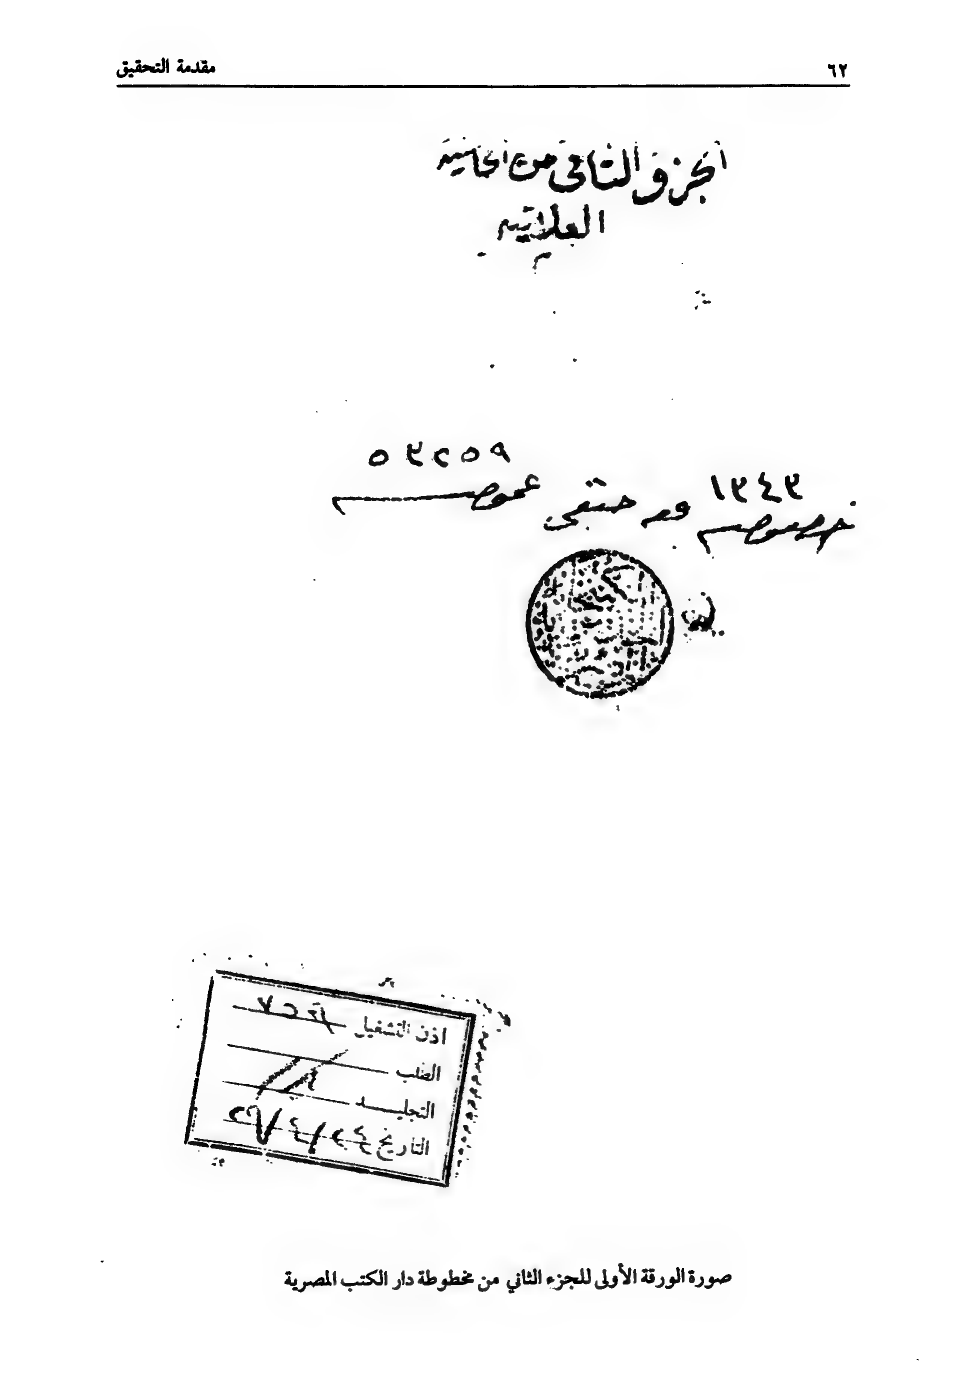 ٦٢ مقدمة التحقيق
الجزؤ الثاني من الحاشية
العلائيه
٥٣٢٥٩
١٣٤٣
خصوصيه فقه حنفي عموميه
اذن التشغيل
الطلب
التجليــد
التاريخ
صورة الورقة الأولى للجزء الثاني من مخطوطة دار الكتب المصرية